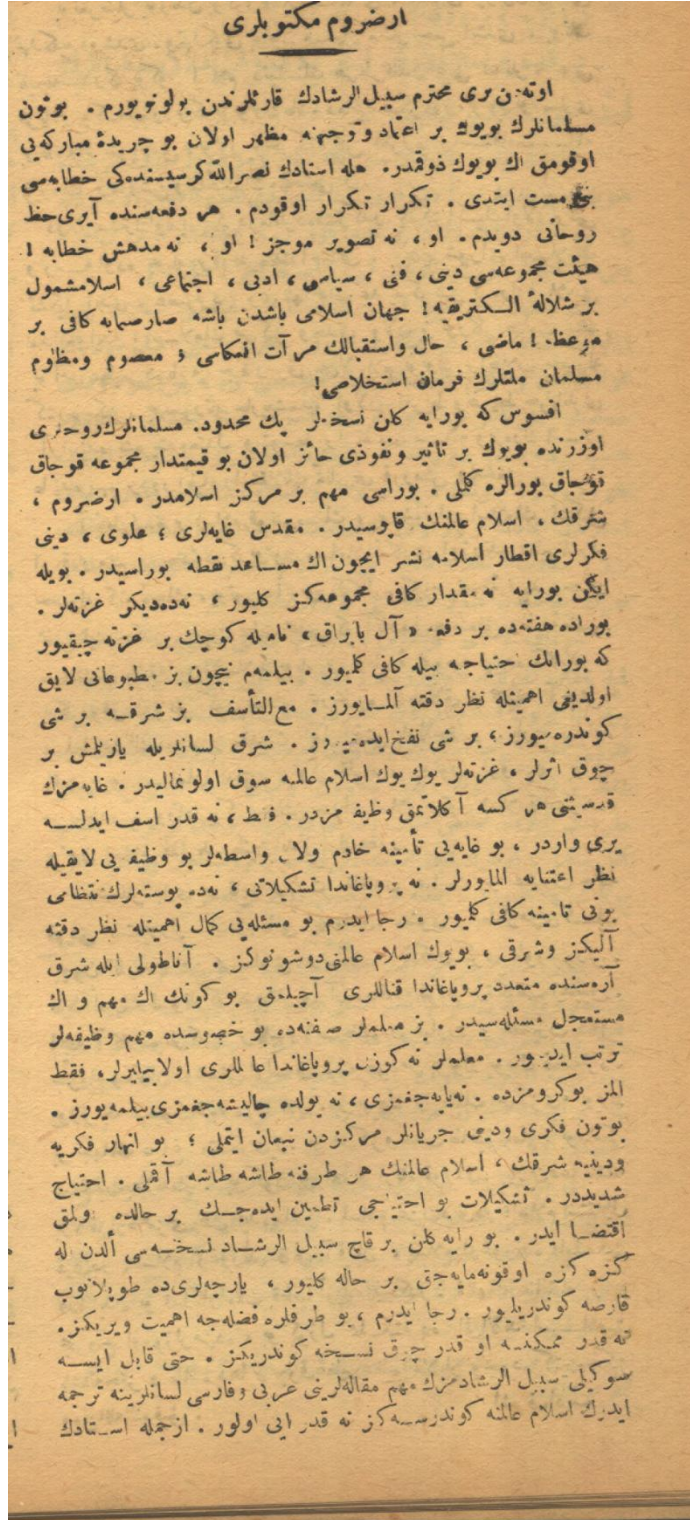 ارضروم مكتوبلری
اوته‌دن بری محترم سبيل‌الرشادك قارئلرندن بولونويورم . بوتون
مسلمانلرك بويوك بر اعتماد و توجهنه مظهر اولان بو جريدهٔ مباركه‌يی
اوقومق اك بويوك ذوقمدر. هله استادك نصرالله كرسيسنده‌كی خطابه‌سی
بنی مست ايتدی . تكرار تكرار اوقودم . هر دفعه‌سنده آيری حظ
روحانی دويدم. او ، نه تصوير موجز ! او ، نه مدهش خطابه !
هيئت مجموعه‌سی دينی ، فنی ، سياسی ، ادبی ، اجتماعی ، اسلامشمول
بر شلالهٔ الكتريقيه ! جهان اسلامی باشدن باشه صارصمايه كافی بر
موعظه ! ماضی ، حال واستقبالك مرآت انعكاسی ؛ معصوم ومظلوم
مسلمان ملتلرك فرمان استخلاصی!
افسوس كه بورايه كلن نسخه‌لر پك محدود. مسلمانلرك روحلری
اوزرنده بويوك بر تاثير ونفوذی حائز اولان بو قيمتدار مجموعه قوجاق
قوجاق بورالره كلملی . بوراسی مهم بر مركز اسلامدر . ارضروم ،
شرقك ، اسلام عالمنك قاپوسيدر . مقدس غايه‌لری ؛ علوی ، دينی
فكرلری اقطار اسلامه نشر ايچون اك مساعد نقطه بوراسيدر . بويله
ايكن بورايه نه مقدار كافی مجموعه‌كز كليور ، نه‌ده‌ديكر غزته‌لر .
بوراده هفته‌ده بر دفعه « آل بايراق » ناميله كوچك بر غزته چيقيور
كه بورانك احتياجنه بيله كافی كلميور . بيلمه‌م نيچون بز مطبوعاتی لايق
اولدينی اهميتله نظر دقته آلمايورز . مع‌التأسف بز شرقه بر شی
كوندره‌ميورز ، بر شی نفخ ايده‌ميورز . شرق لسانلريله يازيلمش بر
چوق اثرلر ، غزته‌لر يوك يوك اسلام عالمنه سوق اولونماليدر . غايه‌مزك
قدسيتنی هر كسه آكلاتمق وظيفه‌مزدر . فقط ، نه قدر اسف ايدلسه
يری واردر ، بو غايه‌يی تأمينه خادم اولان واسطه‌لر بو وظيفه‌يی لايقيله
نظر اعتنايه المايورلر . نه پروپاغاندا تشكيلاتی ، نه‌ده پوسته‌لرك انتظامی
بونی تامينه كافی كلميور . رجا ايدرم بو مسئله‌يی كمال اهميتله نظر دقته
آليكز وشرقی ، بويوك اسلام عالمنی دوشونوكز . آناطولی ايله شرق
آره‌سنده متعدد پروپاغاندا قناللری آچيلمق بو كونك اك مهم و اك
مستعجل مسئله‌سيدر . بز معلملر صفنه‌ده بو خصوصده مهم وظيفه‌لر
ترتب ايديور . معلملر نه كوزل پروپاغاندا عاملّری اولابيليرلر، فقط
المز بوكرومزده . نه‌ياپه‌جغمزی ، نه يولده چاليشه‌جغمزی بيلمه‌يورز .
بوتون فكری ودينی جريانلر مركزدن نبعان ايتملی ؛ بو انهار فكريه
ودينيه شرقك ، اسلام عالمنك هر طرفنه طاشه طاشه آقملی . احتياج
شديددر . تشكيلات بو احتياجی تطمين ايده‌جك بر حالده اولمق
اقتضا ايدر . بو رايه كلن بر قاچ سبيل الرشاد نسخه‌سی ألدن اله
كزه كزه اوقونه‌مايه‌جق بر حاله كليور ، پارچه‌لری‌ده طوپلانوب
قارصه كوندريليور . رجا ايدرم ، بو طرفلره فضله‌جه اهميت ويريكز.
نه قدر ممكنسه او قدر چوق نسخه كوندريكز . حتی قابل ايسه
سوكيلی سبيل الرشادمزك مهم مقاله‌لرينی عربی وفارسی لسانلرينه ترجمه
ايدرك اسلام عالمنه كوندرسه‌كز نه قدر ايی اولور . ازجمله استادك